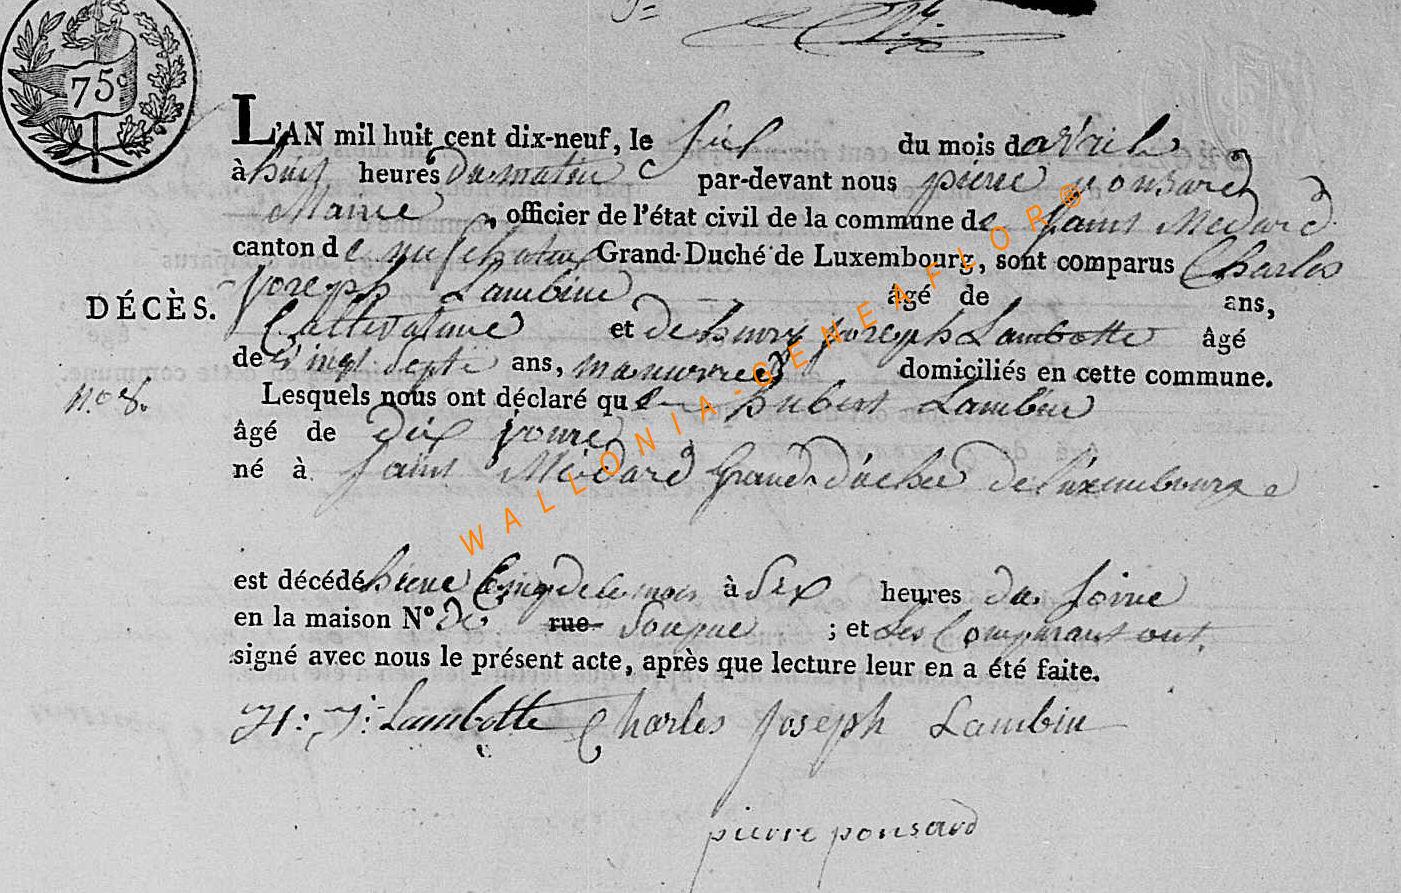 75c
L'AN mil huit cent dix-neuf, le six du mois davril
à huit heures du matin par-devant nous pierre ponsard
Maire, officier de l'état civil de la commune de saint Medard
canton de neufchateau Grand-Duché de Luxembourg, sont comparus Charles
Joseph Lambin âgé de ans,
DÉCÈS.
Cultivateur et de henry joseph Lambotte âgé
de vingt sept ans, manuvre domiciliés en cette commune.
N.o 8.
Lesquels nous ont déclaré que hubert Lambin
âgé de dix jours
né à saint Médard grand duché de Luxembourg
est décédé hiere Cinq de ce mois à six heures du soire
en la maison N° De rue ; et Les Comparant ont
signé avec nous le présent acte, après que lecture leur en a été faite.
H: J: Lambotte Charles Joseph Lambin
pierre ponsard
WALLONIA-GENEAFLOR®